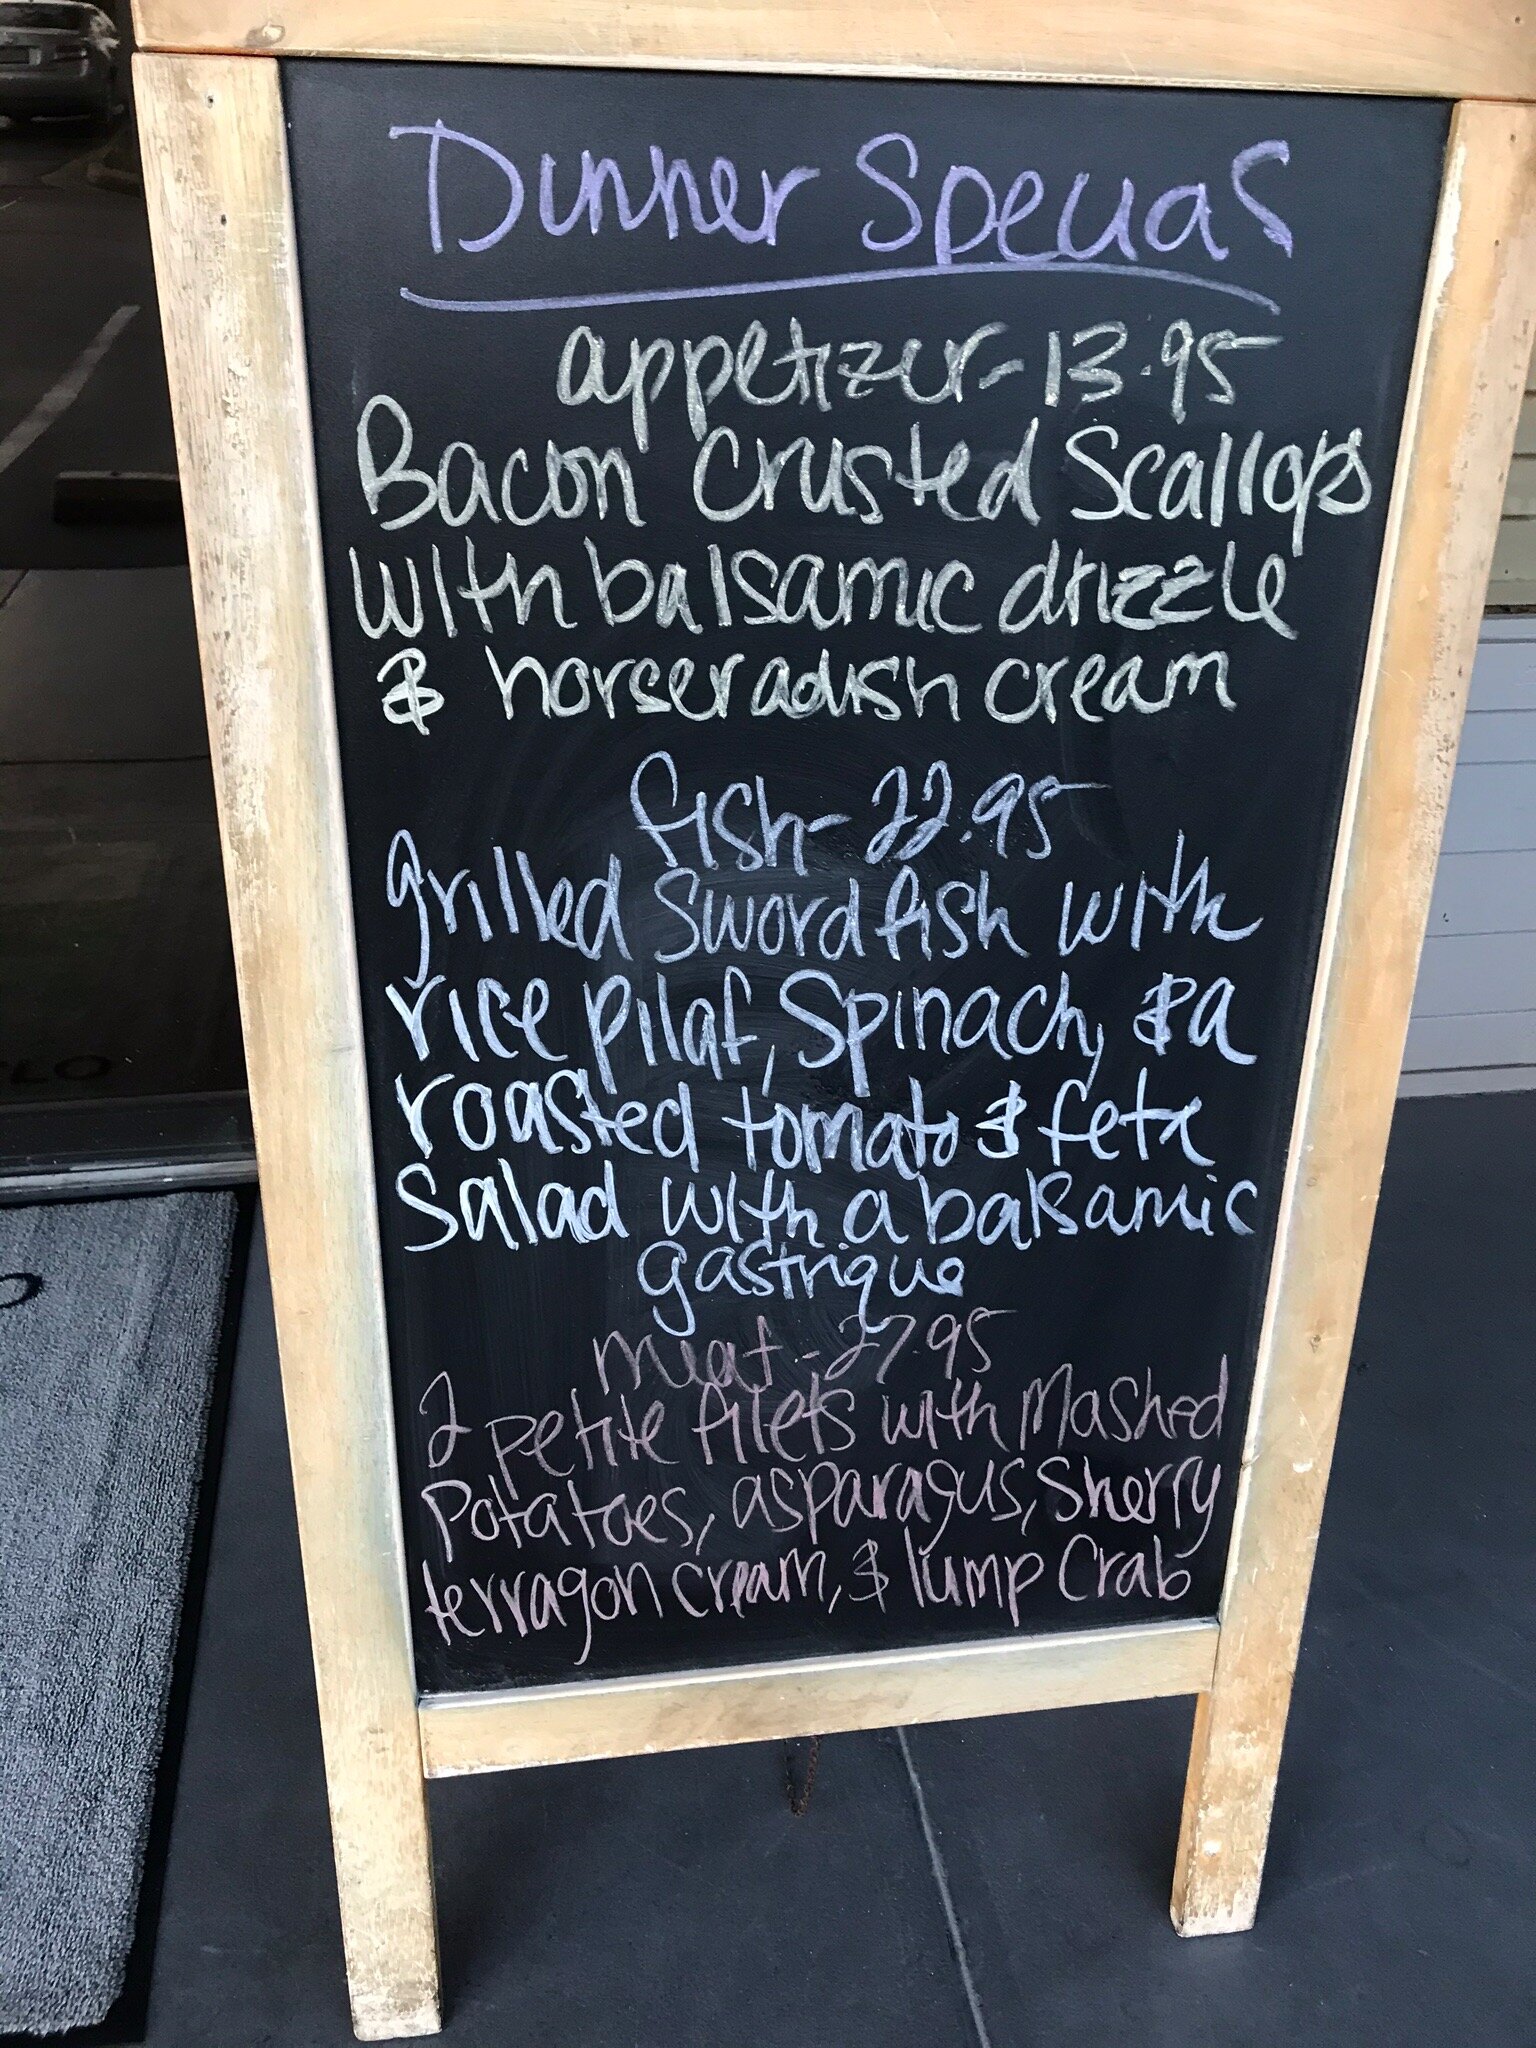 Dinner Specials
appetizer - 13.95
Bacon Crusted Scallops
with balsamic drizzle
& horseradish cream
fish - 22.95
grilled Swordfish with
rice pilaf, Spinach, & a
roasted tomato & feta
Salad with a balsamic
gastrique
meat - 27.95
2 petite filets with Mashed
Potatoes, asparagus, Sherry
terragon cream, & lump Crab